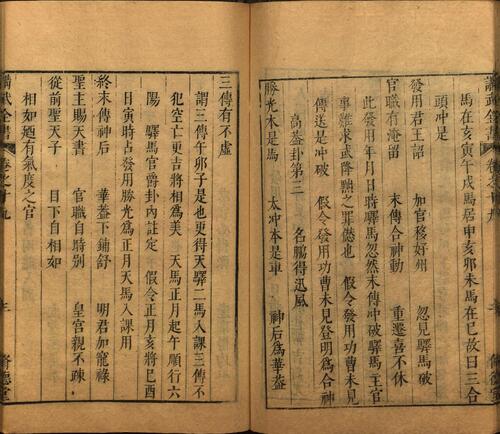 馬在亥寅午戌馬居申亥卯未馬在巳故曰三合
頭冲是
發用君王詔　加官移好州　忽見驛馬破
官職有淹留　末傳合神動　重遷喜不休
此發用年月日時驛馬忽然末傳冲破驛馬主官
事難求或降黜之罪儧也　假令發用功曹未見
傳送是冲破　假令發用功曹未見登明爲合神
高蓋卦第三　名鵬得迅風
勝光本是馬　太冲本是車　神后爲華蓋
三傳有不虛
謂三傳午卯子是也更得天驛二馬入課三傳不
犯空亡更吉將相爲美　天馬正月起午順行六
陽　驛馬官爵卦內註定　假令正月亥將己酉
日寅時占發用勝光爲正月天馬入課用
終末傳神后　華蓋下鋪舒　明君加寵祿
聖主賜天書　官職自時別　皇宮親不疎
從前聖天子　目下自相如
相如廼有氣度之官
講武全書　卷之十九